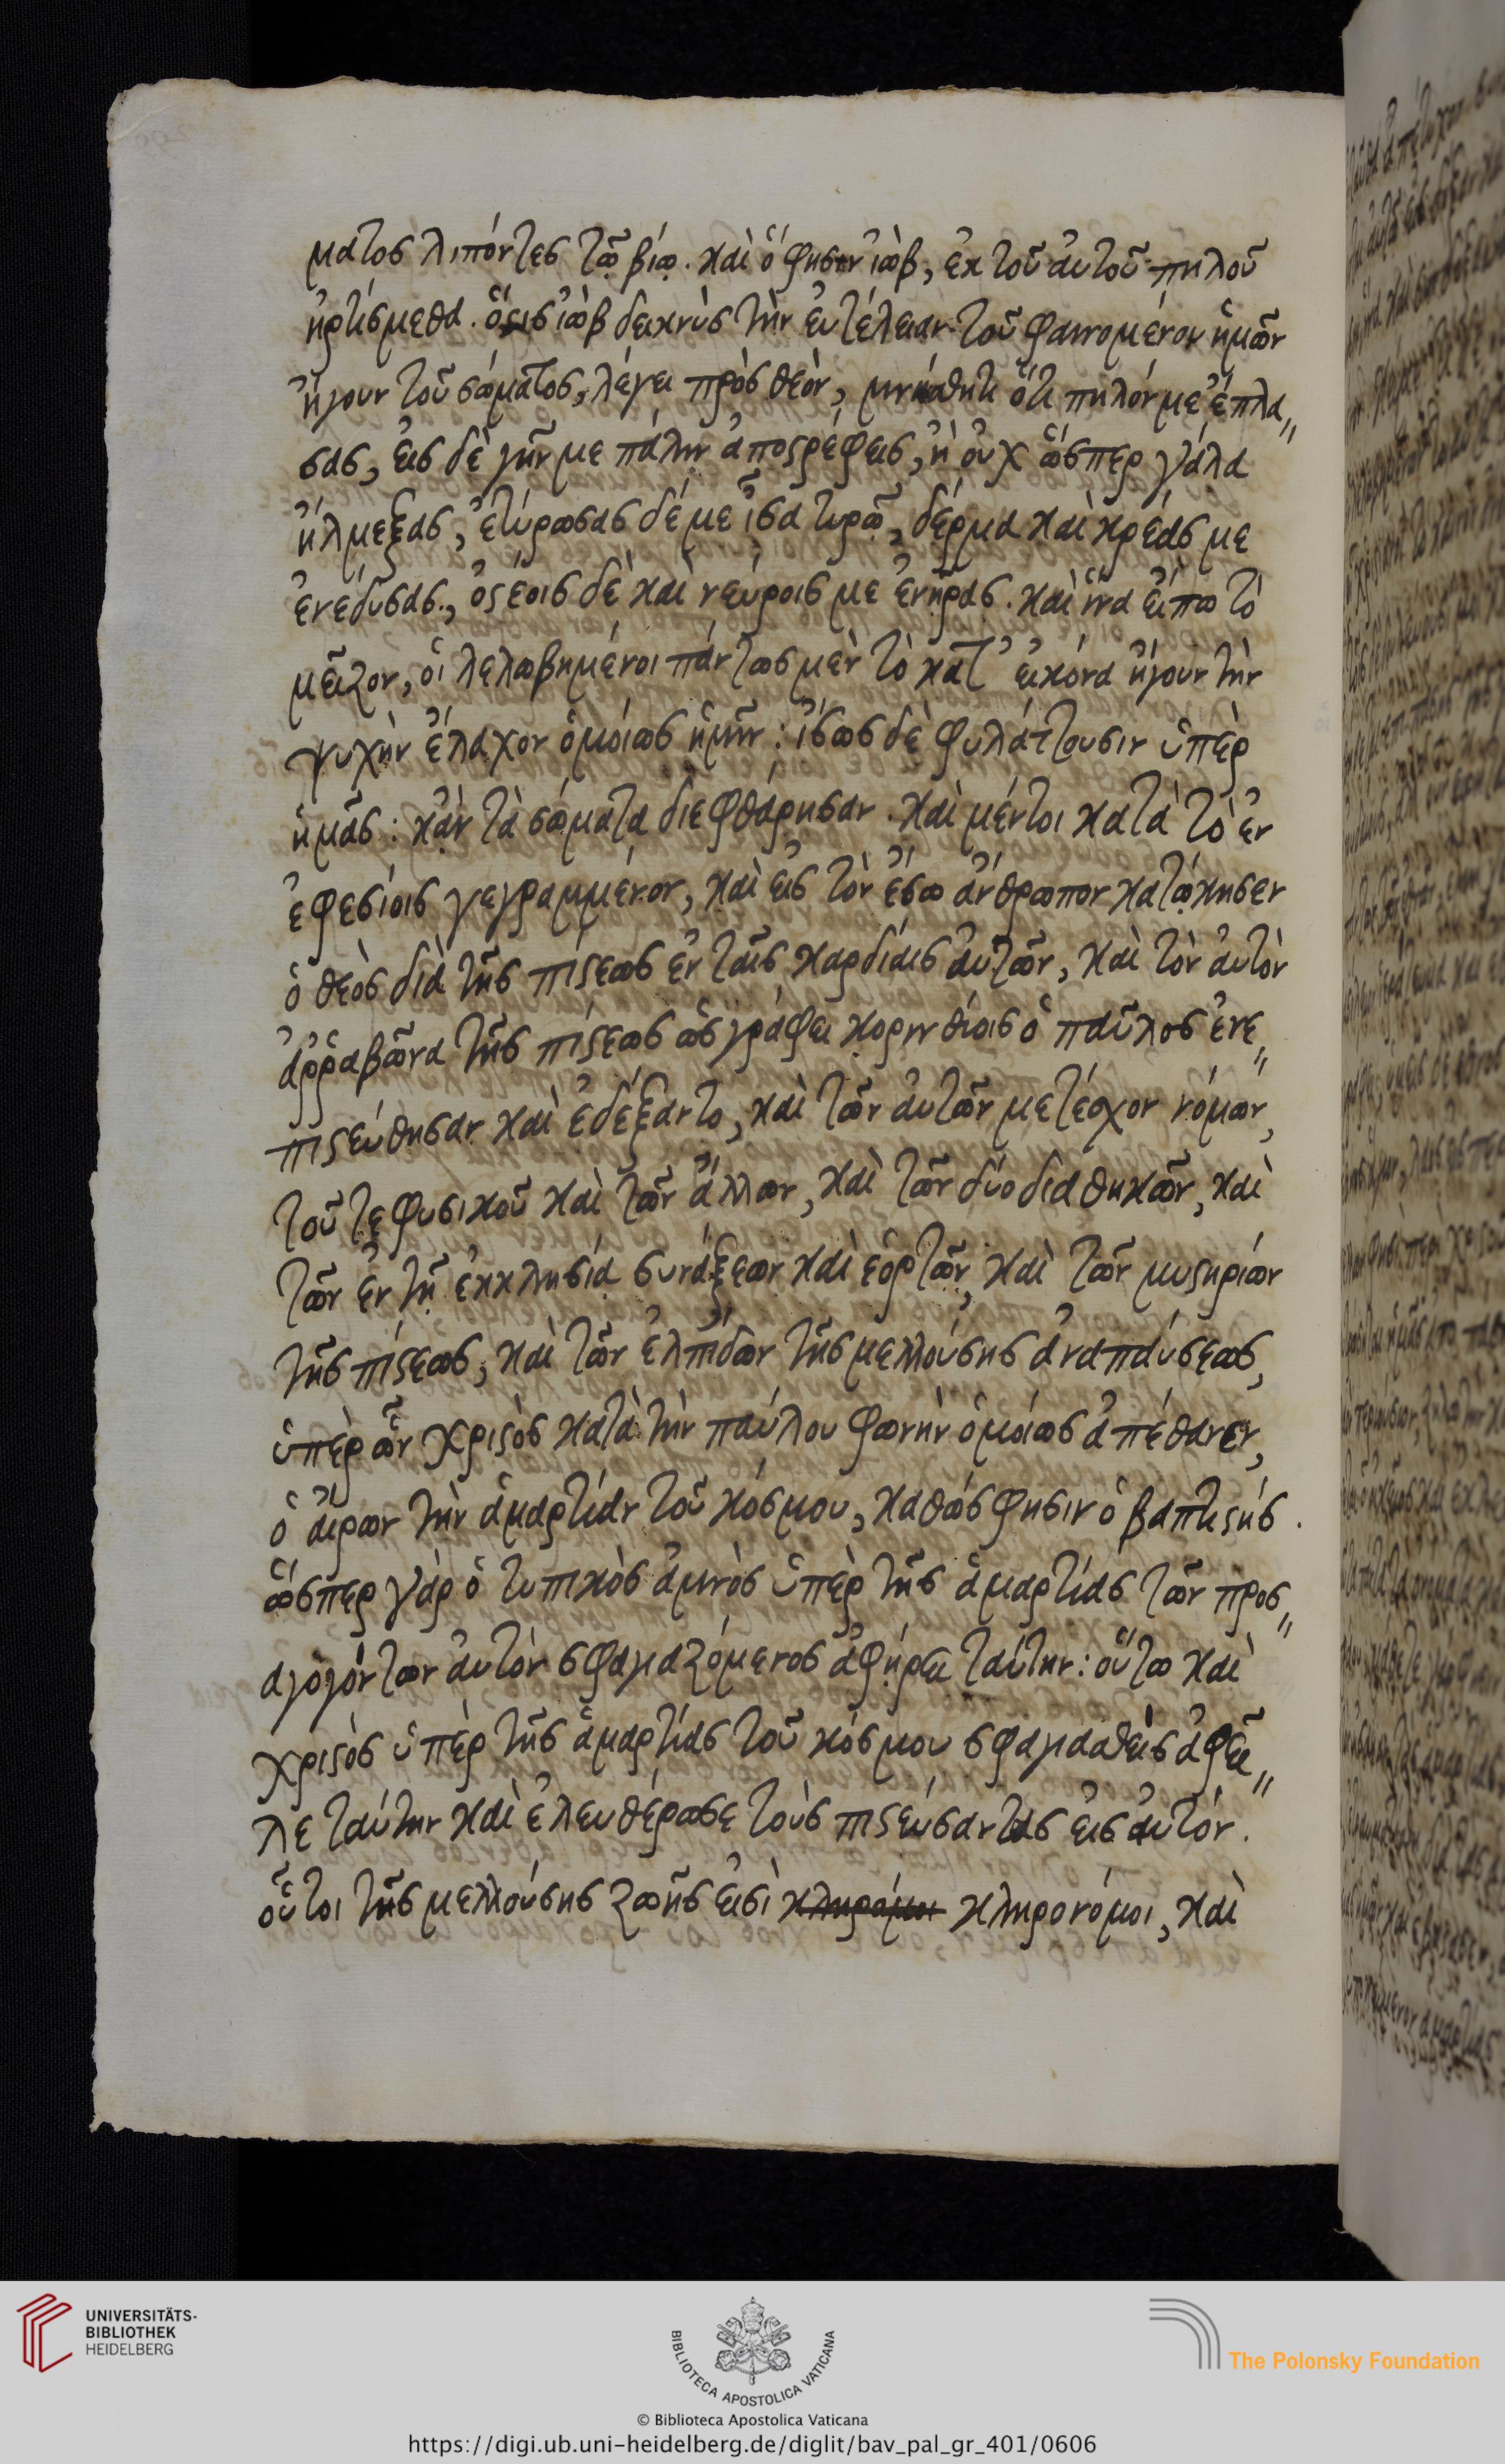 ματος λιπόντες τῶ βίω. καὶ ὅ φησιν ἰὼβ, ἐκ τοῦ αὐτοῦ πηλοῦ
ἠρτίσμεθα. ὅστις ἰὼβ δεικνὺς τὴν εὐτέλειαν τοῦ φαινομένου ἡμῶν
ἤγουν τοῦ σώματος, λέγει πρὸς θεὸν, μνήσθητι ὅτι πηλόν με ἔπλα"
σας, εἰς δὲ γῆν με πάλιν ἀποστρέφεις, ἢ οὐχ ὥσπερ γάλα
ἤλμεξας, ἐτύρωσας δέ με ἶσα τυρῶ, δέρμα καὶ κρέας με
ἐνεδυσας., ὀστέοις δὲ καὶ νεύροις με ἐνῆρας. καὶ ἵνα εἴπω τὸ
μεῖζον, οἱ λελωβημένοι πάντως μὲν τὸ κατ' εἰκόνα ἤγουν τὴν
ψυχὴν ἔλαχον ὁμοίως ἡμῖν : ἴσως δὲ φυλάττουσιν ὑπὲρ
ἡμᾶς : κἂν τὰ σώματα διεφθάρησαν. καὶ μέντοι κατὰ τὸ ἐν
ἐφεσίοις γεγραμμένον, καὶ εἰς τὸν ἔσω ἄνθρωπον κατώκησεν
ὁ θεὸς διὰ τῆς πίστεως ἐν ταῖς καρδίαις αὐτῶν, καὶ τὸν αὐτὸν
ἀῤῥαβῶνα τῆς πίστεως ὡς γράφει κορινθίοις ὁ παῦλος ἐνε"
πιστεύθησαν καὶ ἐδέξαντο, καὶ τῶν αὐτῶν μετέσχον νόμων,
τοῦ τε φυσικοῦ καὶ τῶν ἄλλων, καὶ τῶν δύο διαθηκῶν, καὶ
τῶν ἐν τῆ ἐκκλησία συνάξεων καὶ ἑορτῶν, καὶ τῶν μυστηρίων
τῆς πίστεως, καὶ τῶν ἐλπίδων τῆς μελλούσης ἀναπαύσεως,
ὑπὲρ ὧν χριστὸς κατὰ τὴν παύλου φωνὴν ὁμοίως ἀπέθανεν,
ὁ αἴρων τὴν ἁμαρτίαν τοῦ κόσμου, καθώς φησιν ὁ βαπτιστής.
ὥσπερ γὰρ ὁ τυπικὸς ἀμνὸς ὑπὲρ τῆς ἁμαρτίας τῶν προσ"
αγαγόντων αὐτὸν σφαγιαζόμενος ἀφήρει ταύτην : οὕτω καὶ
χριστὸς ὑπὲρ τῆς ἁμαρτίας τοῦ κόσμου σφαγιαθεὶς ἀφεῖ"
λε ταύτην καὶ ἐλευθέρωσε τοὺς πιστεύσαντας εἰς αὐτόν.
οὗτοι τῆς μελλούσης ζωῆς εἰσὶ κληρόμοι κληρονόμοι, καὶ
UNIVERSITÄTS-
BIBLIOTHEK
HEIDELBERG
BIBLIOTECA APOSTOLICA VATICANA
The Polonsky Foundation
© Biblioteca Apostolica Vaticana
https://digi.ub.uni-heidelberg.de/diglit/bav_pal_gr_401/0606